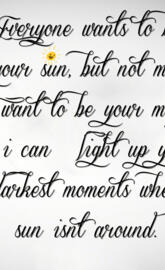 Everyone wants to b
your sun, but not m
want to be your m
i can Light up y
darkest moments whe
sun isnt around.